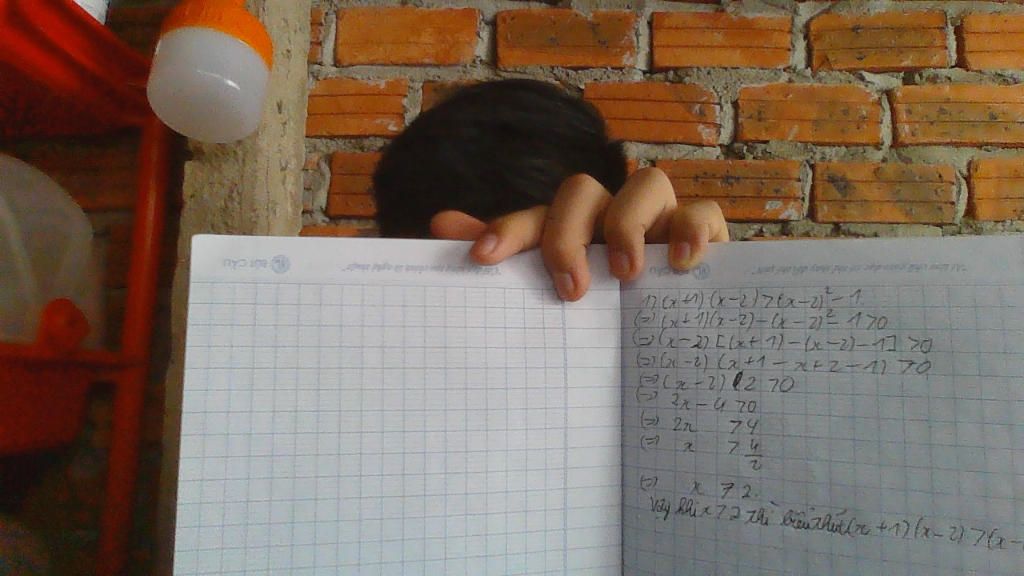 1) (x+1)(x-2)>(x-2)²-1
(=) (x+1)(x-2)-(x-2)²-1>0
(=) (x-2)[(x+1)-(x-2)-1]>0
(=) (x-2)(x+1-x+2-1)>0
(=) (x-2) 2>0
(=) 2x-4>0
(=) 2x >4
(=) x >4/2
(=) x >2.
Vậy khi x>2 thì biểu thức (x+1)(x-2)>(x-